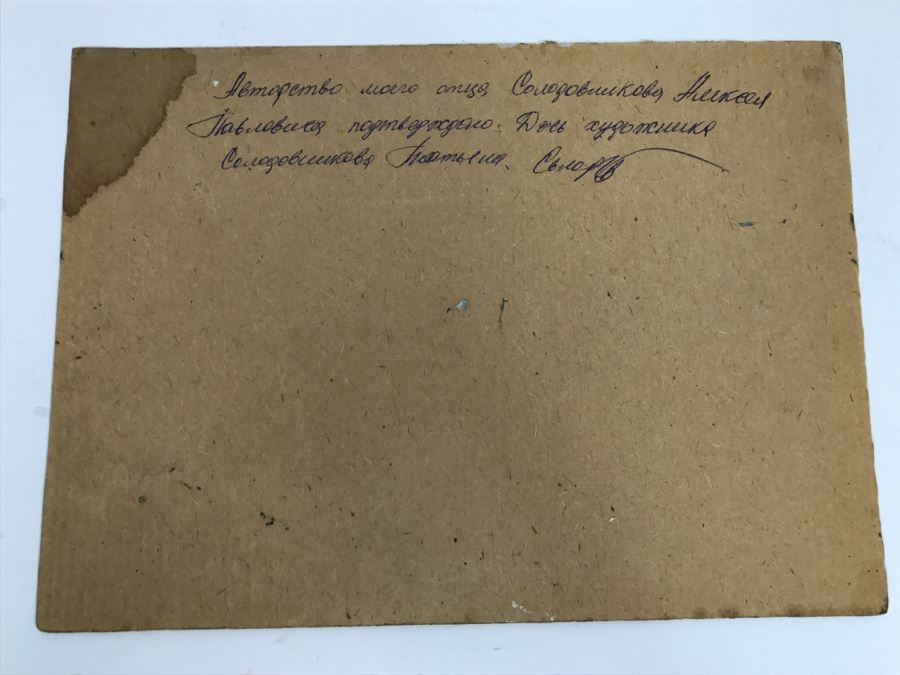 Авторство моего отца Солодовникова Алексея
Павловича подтверждаю. Дочь художника
Солодовникова Татьяна.